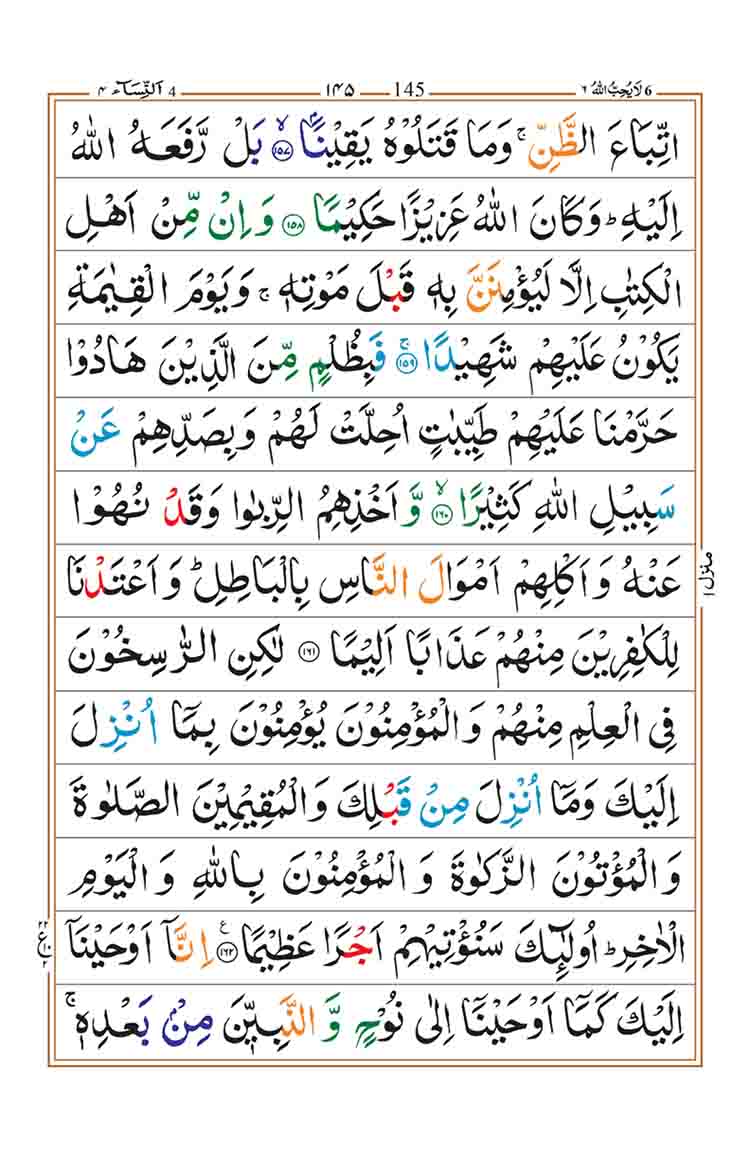 6 لَا يُحِبُّ اللهُ ٦ 145 ١٤٥ 4 اَلنِّسَآء ٤
اتِّبَاعَ الظَّنِّ ۚ وَمَا قَتَلُوْهُ يَقِيْنًۢا ۙ‏﴿۱۵۷﴾ بَلْ رَّفَعَهُ اللهُ
اِلَيْهِ ؕ وَكَانَ اللهُ عَزِيْزًا حَكِيْمًا ﴿۱۵۸﴾ وَاِنْ مِّنْ اَهْلِ
الْكِتٰبِ اِلَّا لَيُؤْمِنَنَّ بِهٖ قَبْلَ مَوْتِهٖ ۚ وَيَوْمَ الْقِيٰمَةِ
يَكُوْنُ عَلَيْهِمْ شَهِيْدًا ۚ﴿۱۵۹﴾ فَبِظُلْمٍ مِّنَ الَّذِيْنَ هَادُوْا
حَرَّمْنَا عَلَيْهِمْ طَيِّبٰتٍ اُحِلَّتْ لَهُمْ وَبِصَدِّهِمْ عَنْ
سَبِيْلِ اللهِ كَثِيْرًا ۙ﴿۱۶۰﴾ وَّاَخْذِهِمُ الرِّبٰوا وَقَدْ نُهُوْا
عَنْهُ وَاَكْلِهِمْ اَمْوَالَ النَّاسِ بِالْبَاطِلِ ؕ وَاَعْتَدْنَا
لِلْكٰفِرِيْنَ مِنْهُمْ عَذَابًا اَلِيْمًا ﴿۱۶۱﴾ لٰكِنِ الرّٰسِخُوْنَ
فِي الْعِلْمِ مِنْهُمْ وَالْمُؤْمِنُوْنَ يُؤْمِنُوْنَ بِمَاۤ اُنْزِلَ
اِلَيْكَ وَمَاۤ اُنْزِلَ مِنْ قَبْلِكَ وَالْمُقِيْمِيْنَ الصَّلٰوةَ
وَالْمُؤْتُوْنَ الزَّكٰوةَ وَالْمُؤْمِنُوْنَ بِاللهِ وَالْيَوْمِ
الْاٰخِرِ ؕ اُولٰٓئِكَ سَنُؤْتِيْهِمْ اَجْرًا عَظِيْمًا ﴿۱۶۲﴾ ع اِنَّاۤ اَوْحَيْنَاۤ
اِلَيْكَ كَمَاۤ اَوْحَيْنَاۤ اِلٰى نُوْحٍ وَّالنَّبِيّٖنَ مِنْۢ بَعْدِهٖ ۚ
منزل ١